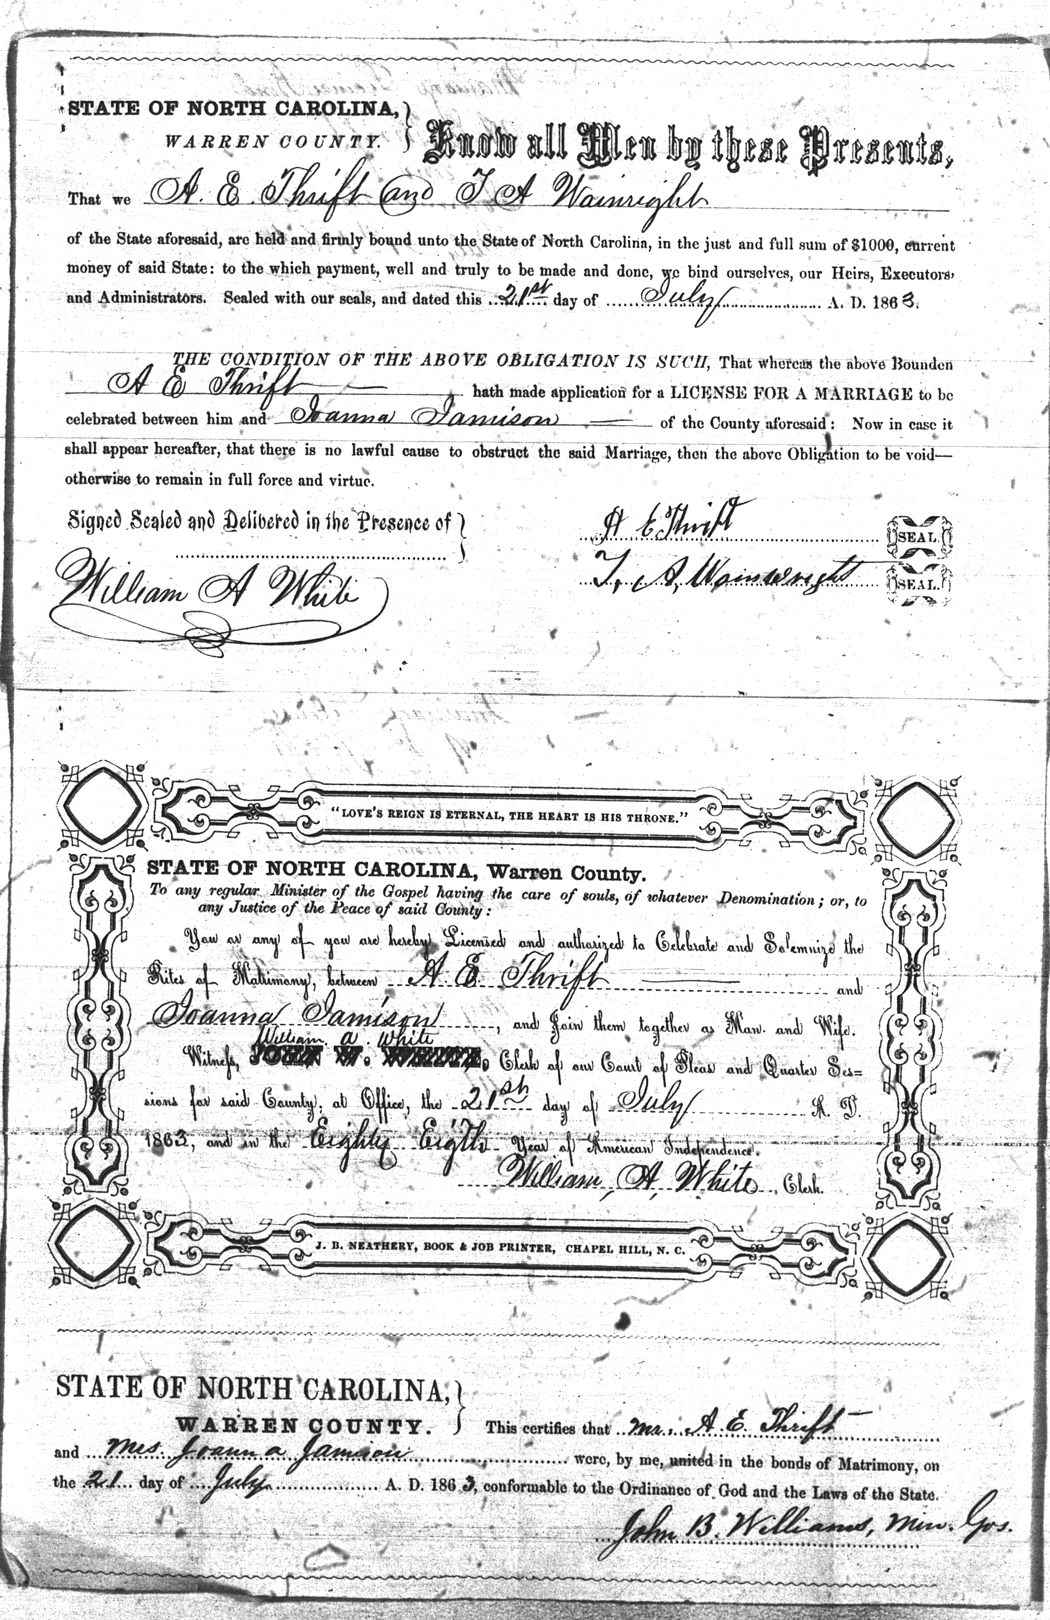 STATE OF NORTH CAROLINA,
WARREN COUNTY.
Know all Men by these Presents,
That we A. E. Thrift and T A Wainright
of the State aforesaid, are held and firmly bound unto the State of North Carolina, in the just and full sum of $1000, current
money of said State: to the which payment, well and truly to be made and done, we bind ourselves, our Heirs, Executors
and Administrators. Sealed with our seals, and dated this 21st day of July A. D. 1863.
THE CONDITION OF THE ABOVE OBLIGATION IS SUCH, That whereas the above Bounden
A E Thrift hath made application for a LICENSE FOR A MARRIAGE to be
celebrated between him and Joanna Jamison of the County aforesaid: Now in case it
shall appear hereafter, that there is no lawful cause to obstruct the said Marriage, then the above Obligation to be void—
otherwise to remain in full force and virtue.
Signed Sealed and Delivered in the Presence of
A E Thrift SEAL.
William A White
T, A, Wainwright SEAL.
"LOVE'S REIGN IS ETERNAL, THE HEART IS HIS THRONE."
STATE OF NORTH CAROLINA, Warren County.
To any regular Minister of the Gospel having the care of souls, of whatever Denomination; or, to
any Justice of the Peace of said County:
You or any of you are hereby Licensed and authorized to Celebrate and Solemnize the
Rites of Matrimony, between A E Thrift and
Joanna Jamison, and Join them together as Man and Wife.
William. a. White
Witness, JOHN W. WHITE, Clerk of our Court of Pleas and Quarter Ses=
sions for said County, at Office, the 21st day of July A. D.
1863, and in the Eighty Eigth Year of American Independence.
William, A, White Clerk.
J. B. NEATHERY, BOOK & JOB PRINTER, CHAPEL HILL, N. C.
STATE OF NORTH CAROLINA,
WARREN COUNTY.
This certifies that Mr. A E Thrift
and Mrs. Joanna Jamison were, by me, united in the bonds of Matrimony, on
the 21 day of July A. D. 1863, conformable to the Ordinance of God and the Laws of the State.
John B. Williams, Min. Gos.